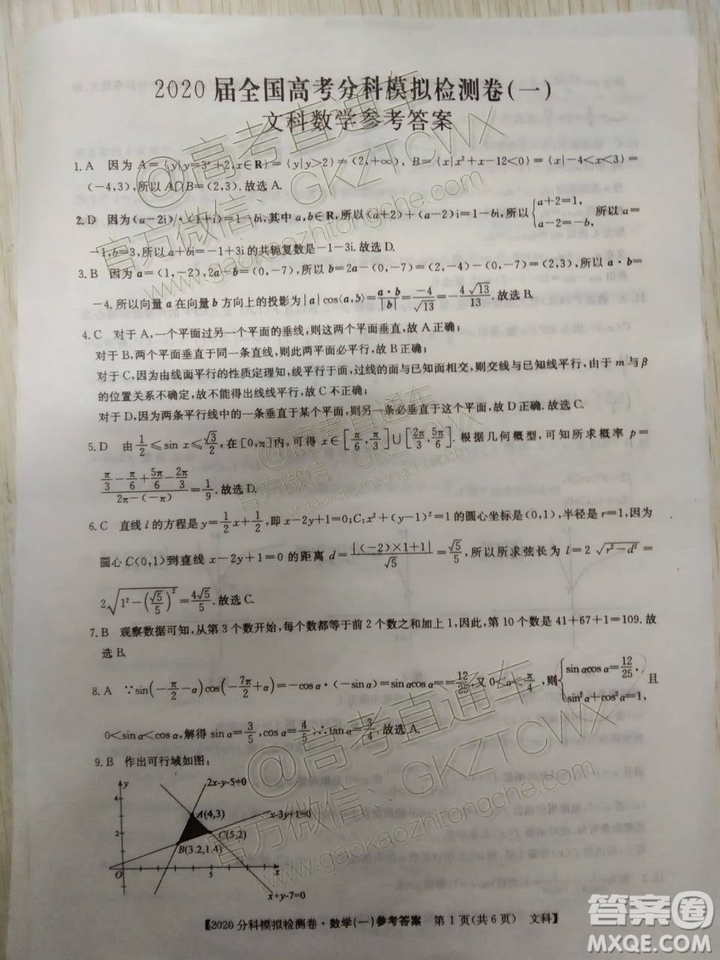 2020届全国高考分科模拟检测卷(一)
文科数学参考答案
1.A 因为 A={y|y=3ˣ+2,x∈R}={y|y>2}=(2,+∞), B={x|x²+x-12<0}={x|-4<x<3}=
(-4,3),所以 A∩B=(2,3).故选 A.
2.D 因为(a-2i)·(1+i)=1-bi,其中 a,b∈R,所以(a+2)+(a-2)i=1-bi,所以{a+2=1, a-2=-b, 所以 a=
-1,b=3,所以 a+bi=-1+3i的共轭复数是-1-3i.故选 D.
3.B 因为 a=(1,-2),2a-b=(0,-7),所以 b=2a-(0,-7)=(2,-4)-(0,-7)=(2,3),所以 a·b=
-4,所以向量 a 在向量 b 方向上的投影为|a|cos⟨a,b⟩=a·b/|b|=-4/√13=-4√13/13.故选 B.
4.C 对于 A,一个平面过另一个平面的垂线,则这两个平面垂直,故 A 正确;
对于 B,两个平面垂直于同一条直线,则此两平面必平行,故 B 正确;
对于 C,因为由线面平行的性质定理知,线面平行,过直线的平面与已知平面的交线与已知线平行,由于 m 与 β
的位置关系不确定,故不能得出线线平行,故 C 不正确;
对于 D,因为两条平行线中的一条垂直于某个平面,则另一条必垂直于这个平面,故 D 正确.故选 C.
5.D 由 1/2≤sin x≤√3/2,在[0,π]内,可得 x∈[π/6,π/3]∪[2π/3,5π/6].根据几何概型,可知所求概率为
p=(π/3-π/6+5π/6-2π/3)/(2π-(-π))=1/9.故选 D.
6.C 直线 l 的方程是 y=1/2x+1/2,即 x-2y+1=0;C:x²+(y-1)²=1 的圆心坐标是(0,1),半径是 r=1,因为
圆心 C(0,1)到直线 x-2y+1=0 的距离 d=|(-2)×1+1|/√5=√5/5,所以所求弦长为 l=2√(r²-d²)=
2√(1²-(√5/5)²)=4√5/5.故选 C.
7.B 观察数据可知,从第 3 个数开始,每个数都等于前 2 个数之和加上 1,因此,第 10 个数是 41+67+1=109.故
选 B.
8.A ∵sin(-π/2-α)cos(-7π/2+α)=-cos α·(-sin α)=12/25,又 0<α<π/4,则{sin αcos α=12/25, sin²α+cos²α=1, 且
0<sin α<cos α,解得 sin α=3/5,cos α=4/5,∴tan α=3/4.故选 A.
9.B 作出可行域如图:
2x-y-5=0
y
4
A(4,3)
x-3y+1=0
2
C(5,2)
B(3.2,1.4)
5
x
x+y-7=0
【2020分科模拟检测卷·数学(一)参考答案 第1页(共6页) 文科】
@高考直通车
官方微信:GKZTCWX
www.gaokaozhitongche.com
@高考直通车
官方微信:GKZTCWX
www.gaokaozhitongche.com
答案圈
MXQE.COM